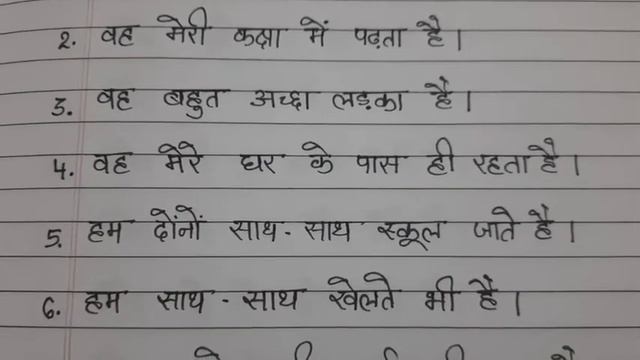 2. वह मेरी कक्षा में पढ़ता है।
3. वह बहुत अच्छा लड़का है।
4. वह मेरे घर के पास ही रहता है।
5. हम दोंनों साथ-साथ स्कूल जाते है।
6. हम साथ-साथ खेलते भी हैं।